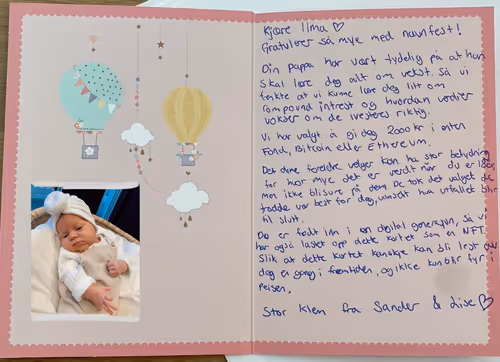 Kjære Ilma ♡
Gratulerer så mye med navnfest!
Din pappa har vært tydelig på at han
skal lære deg alt om vekst. Så vi
tenkte at vi kunne lære deg litt om
compound intrest og hvordan verdier
vokser om de investeres riktig.
Vi har valgt å gi deg 2000kr i enten
Fond, Bitcoin eller Ethereum.
Det dine foreldre velger kan ha stor betydning
for hvor mye det er verdt når du er
men ikke bli sure på dem. De tok det valget de
trodde var best for deg, uansett hva utfallet blir
til slutt.
Du er født inn i en digital generasjon, så vi
har også laget opp dette kortet som en NFT.
Slik at dette kortet kanskje kan bli lest av
deg en gang i fremtiden, og ikke kun blir fyr i
peisen.
Stor klem fra Sander & Lise ♡